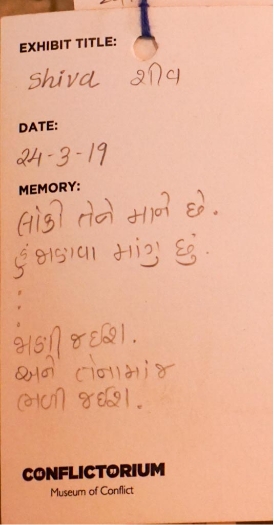 EXHIBIT TITLE:
Shiva શીવ
DATE:
24-3-19
MEMORY:
લોકો તેને માને છે.
હું જાણવા માંગુ છું.
:
:
જાણી જઈશ.
અને તેનામાંજ
ભળી જઈશ.
CONFLICTORIUM
Museum of Conflict